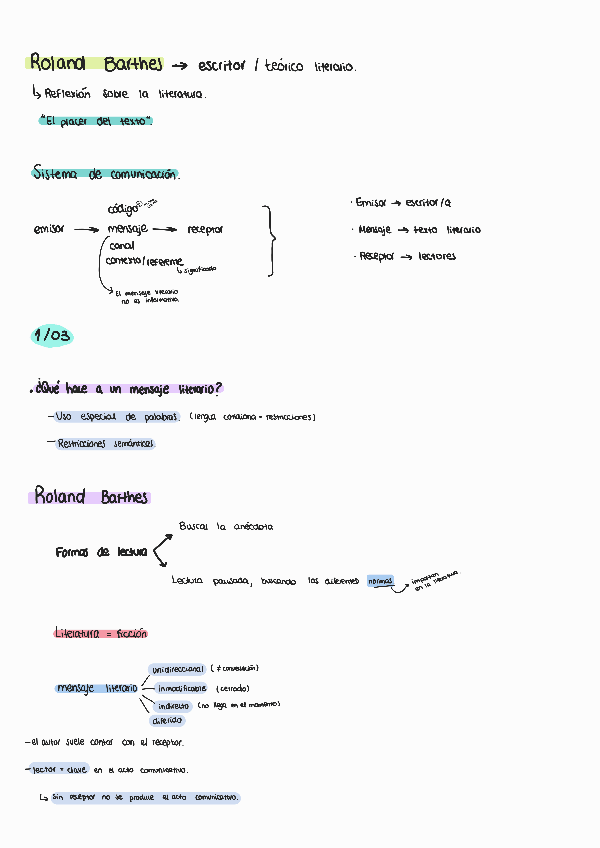 Roland Barthes → escritor / teórico literario.
↳ Reflexión sobre la literatura.
"El placer del texto".
Sistema de comunicación.
código
emisor → mensaje → receptor
canal
contexto/referente
↳ significado
El mensaje literario
no es informativo.
· Emisor → escritor/a
· Mensaje → texto literario
· Receptor → lectores
1/03
· ¿Qué hace a un mensaje literario?
- Uso especial de palabras. (lengua cotidiana + restricciones)
- Restricciones semánticas.
Roland Barthes
Buscar la anécdota
Formas de lectura
Lectura pausada, buscando las diferentes normas → importan
en la literatura
Literatura = ficción
unidireccional (≠ conversación)
mensaje literario
inmodificable (cerrado)
indirecto (no llega en el momento)
diferido
- el autor suele contar con el receptor.
- lector = clave en el acto comunicativo.
↳ Sin receptor no se produce el acto comunicativo.